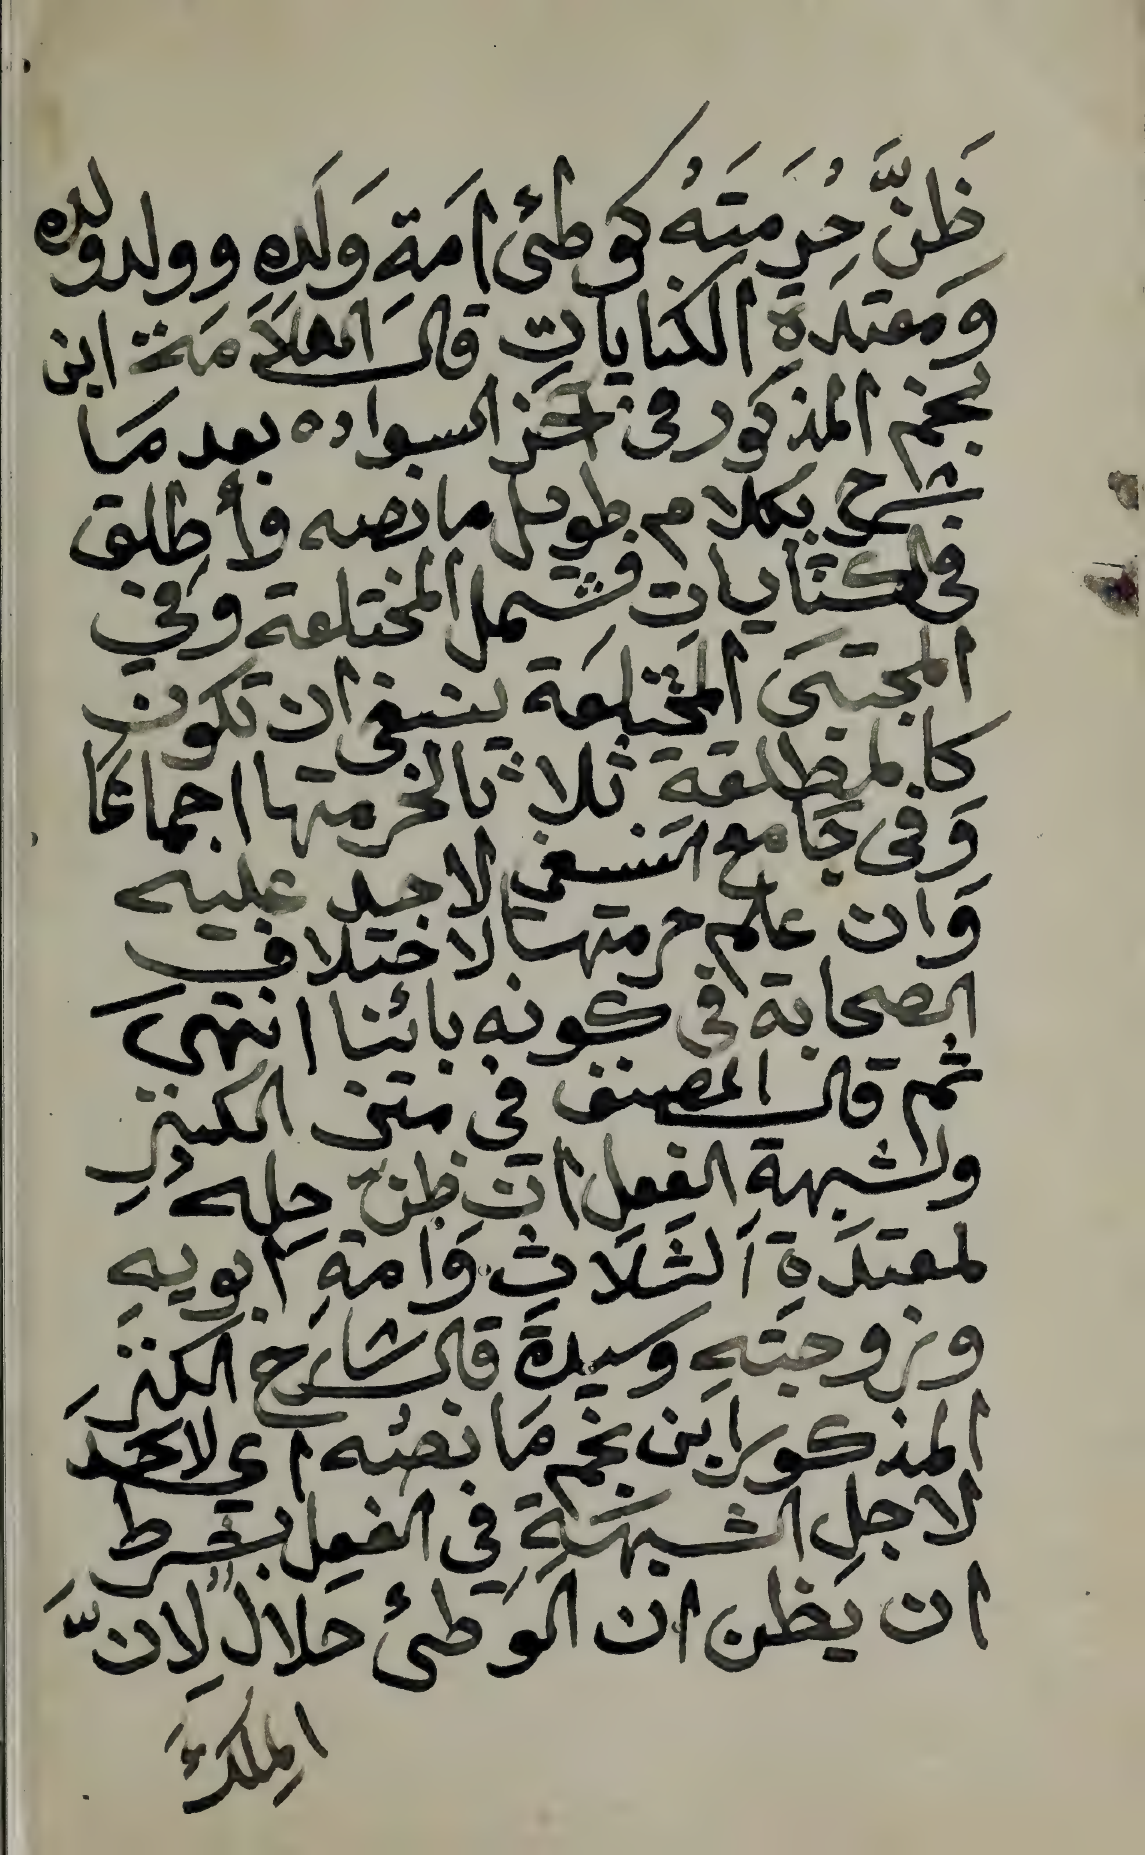 ظَنَّ حُرِمَتَهُ كوطئ اَمَة وَلَدِه وولدولده
وَمعتدَةِ الكنايات قال العلاَمَة ابن
نجيم المذكور في السواده بعد مَا
شرح بكلام طويل ما نصه وأطلق
في الكنايات فشمل المختلعة وَفي
المجتبَى المختلِعَة ينبغى ان تكون
كالمطلقةِ ثلاثا لخرمتها اجماعًا
وَفى جَامع النسفى لاحد عليه
وَان علم حرمتها لاختلاف
الصحابة في كونه بائنا انتهى
ثم قال المصنف في متن الكنز
ولشبهة الفعل ان ظنّ حِله
لمعتدَة اَلثَلَاثِ وَامةِ ابويهِ
وزوجَتهِ وسيدة قال شارح الكنز
المذكورابن نجم مَا نصُه اي لاحَدَ
لاجل الشبهَةِ في الفعل بشرط
ان يَظن ان الوَطئ حلال لِانَّ
الملكَ